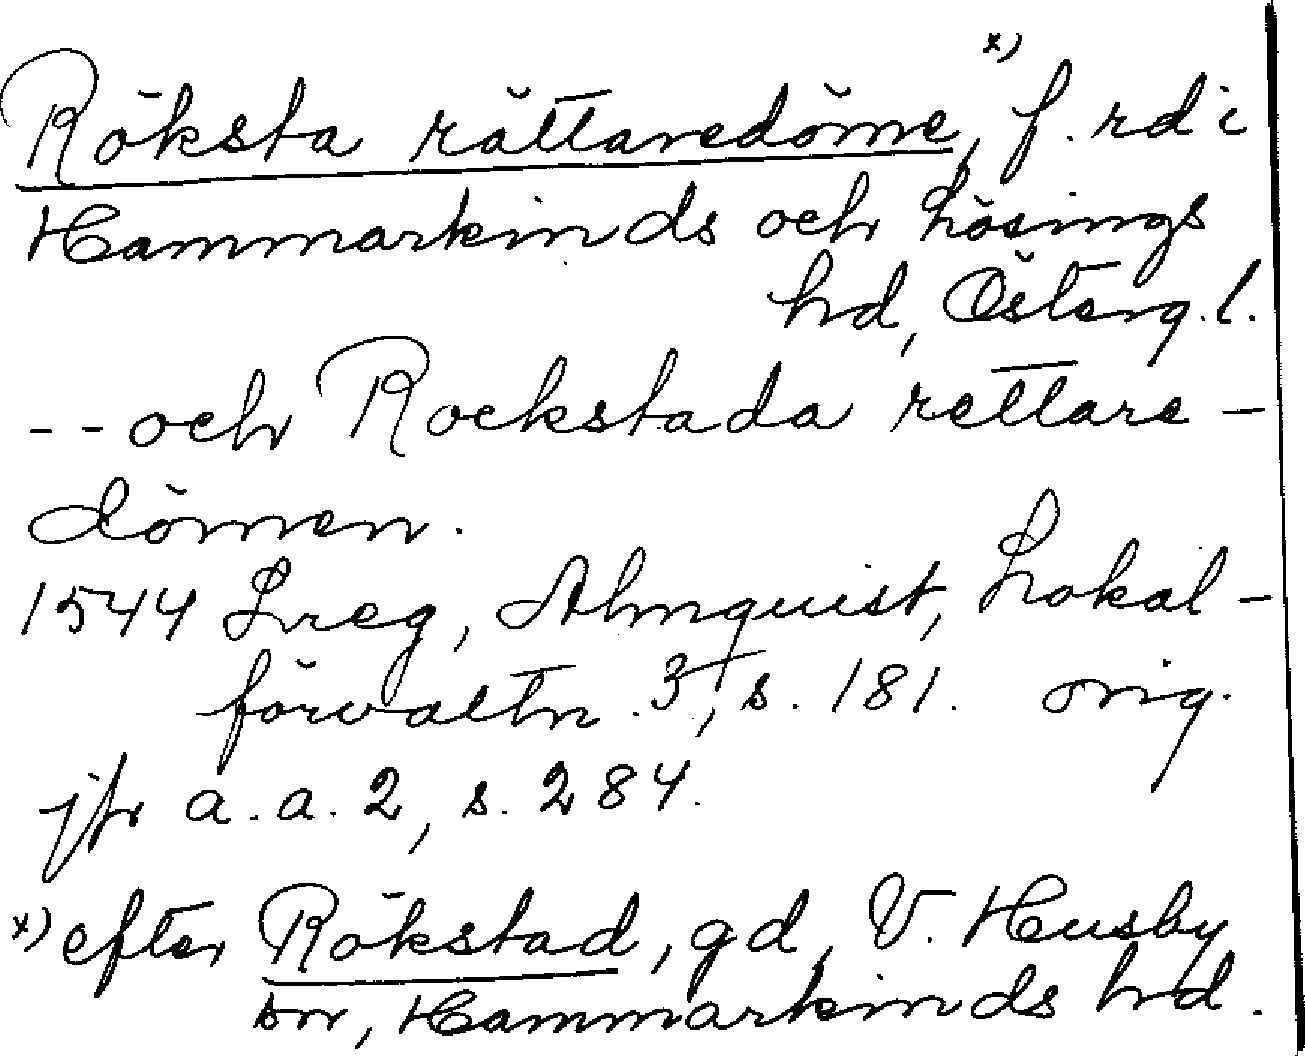 Röksta rättaredöme, x) f. rd i
Hammarkinds och Lösings
hd, Österg. l.
-- och Rockstada rettare-
dömen.
1544 Lreg, Almquist, Lokal-
förvaltn. 3, s. 181. orig.
jfr a.a. 2, s. 284.
x) efter Rökstad, gd, V. Husby
sn, Hammarkinds hd.